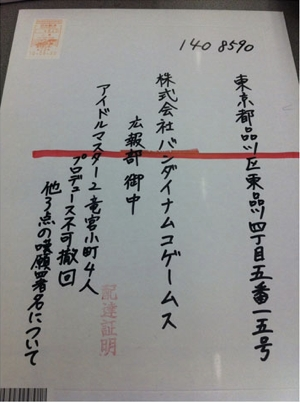 140 8590
東京都品川区東品川四丁目五番一五号
株式会社バンダイナムコゲームス
広報部 御中
アイドルマスター2 竜宮小町4人
プロデュース不可撤回
他3点の嘆願署名について
配達証明